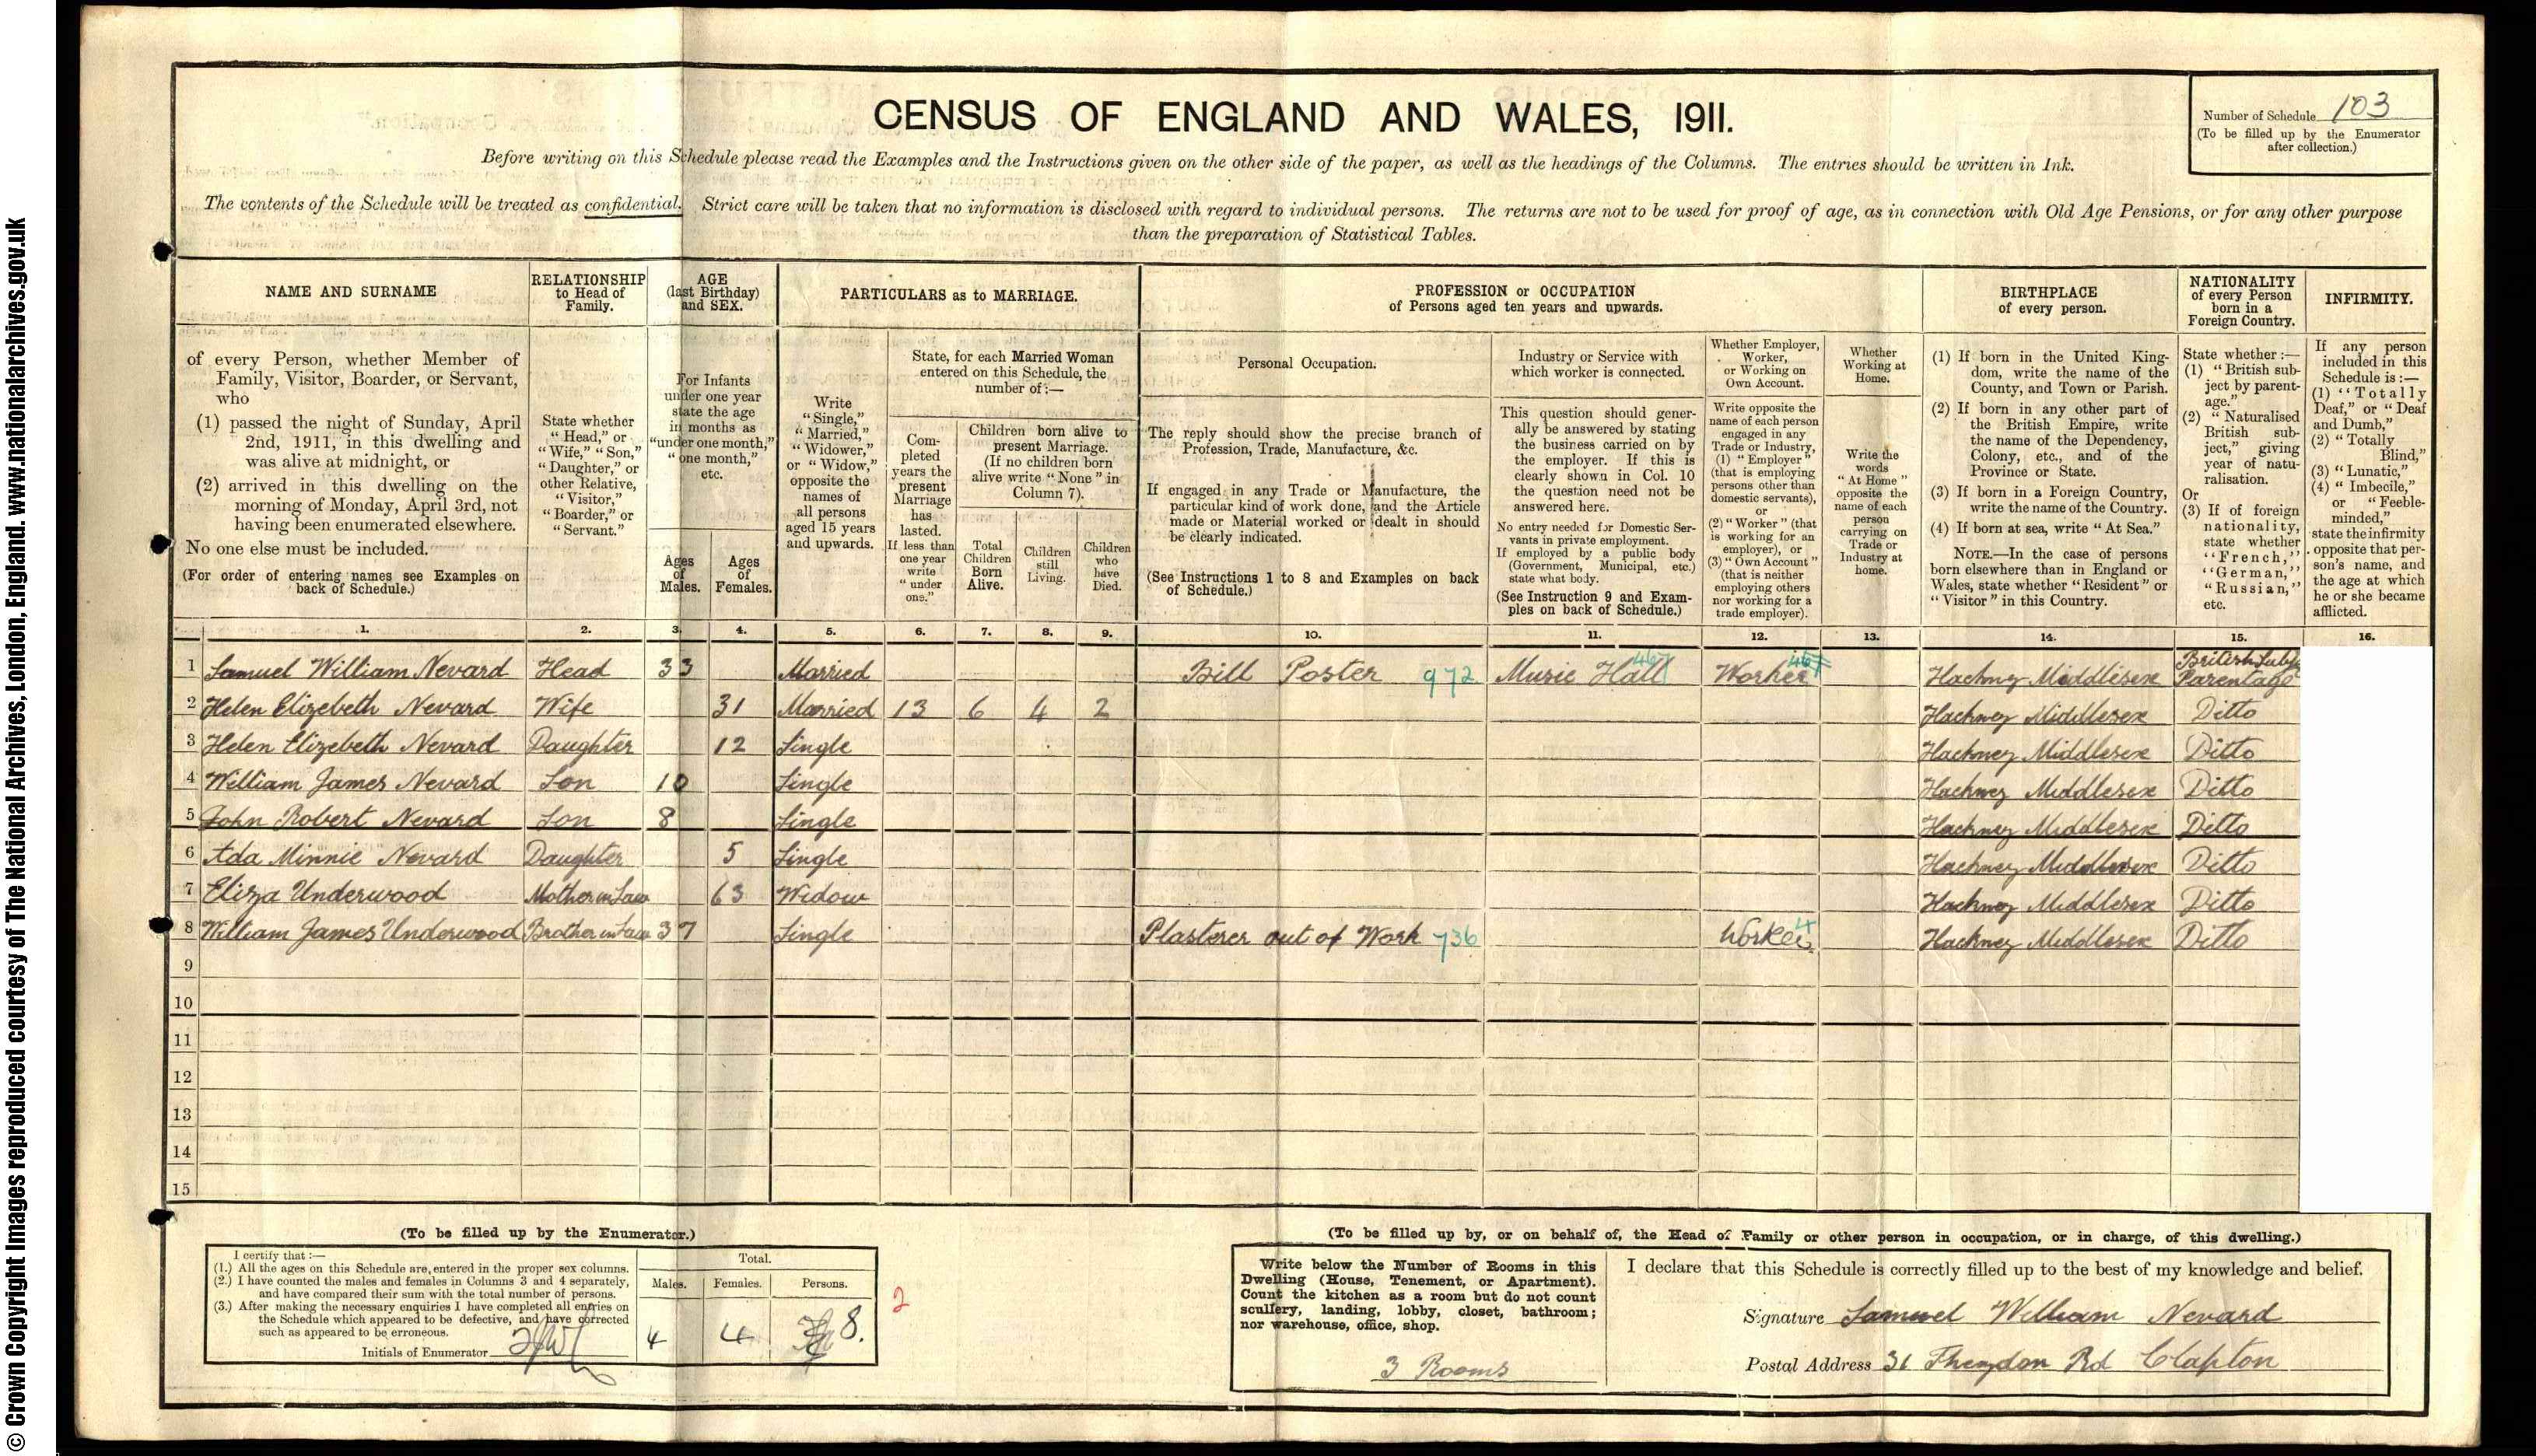 © Crown Copyright Images reproduced courtesy of The National Archives, London, England. www.nationalarchives.gov.uk
CENSUS OF ENGLAND AND WALES, 1911.
Number of Schedule 103
(To be filled up by the Enumerator
after collection.)
Before writing on this Schedule please read the Examples and the Instructions given on the other side of the paper, as well as the headings of the Columns. The entries should be written in Ink.
The contents of the Schedule will be treated as confidential. Strict care will be taken that no information is disclosed with regard to individual persons. The returns are not to be used for proof of age, as in connection with Old Age Pensions, or for any other purpose
than the preparation of Statistical Tables.
NAME AND SURNAME
of every Person, whether Member of
Family, Visitor, Boarder, or Servant,
who
(1) passed the night of Sunday, April
2nd, 1911, in this dwelling and
was alive at midnight, or
(2) arrived in this dwelling on the
morning of Monday, April 3rd, not
having been enumerated elsewhere.
No one else must be included.
(For order of entering names see Examples on
back of Schedule.)
RELATIONSHIP
to Head of
Family.
State whether
"Head," or
"Wife," "Son,"
"Daughter," or
other Relative,
"Visitor,"
"Boarder," or
"Servant."
AGE
(last Birthday)
and SEX.
For Infants
under one year
state the age
in months as
"under one month,"
"one month,"
etc.
Ages
of
Males.
Ages
of
Females.
PARTICULARS as to MARRIAGE.
Write
"Single,"
"Married,"
"Widower,"
or "Widow,"
opposite the
names of
all persons
aged 15 years
and upwards.
State, for each Married Woman
entered on this Schedule, the
number of:—
Com-
pleted
years the
present
Marriage
has
lasted.
If less than
one year
write
"under
one."
Children born alive to
present Marriage.
(If no children born
alive write "None" in
Column 7).
Total
Children
Born
Alive.
Children
still
Living.
Children
who
have
Died.
PROFESSION or OCCUPATION
of Persons aged ten years and upwards.
Personal Occupation.
The reply should show the precise branch of
Profession, Trade, Manufacture, &c.
If engaged in any Trade or Manufacture, the
particular kind of work done, and the Article
made or Material worked or dealt in should
be clearly indicated.
(See Instructions 1 to 8 and Examples on back
of Schedule.)
Industry or Service with
which worker is connected.
This question should gener-
ally be answered by stating
the business carried on by
the employer. If this is
clearly shown in Col. 10
the question need not be
answered here.
No entry needed for Domestic Ser-
vants in private employment.
If employed by a public body
(Government, Municipal, etc.)
state what body.
(See Instruction 9 and Exam-
ples on back of Schedule.)
Whether Employer,
Worker,
or Working on
Own Account.
Write opposite the
name of each person
engaged in any
Trade or Industry,
(1) "Employer"
(that is employing
persons other than
domestic servants),
or
(2) "Worker" (that
is working for an
employer), or
(3) "Own Account"
(that is neither
employing others
nor working for a
trade employer).
Whether
Working at
Home.
Write the
words
"At Home"
opposite the
name of each
person
carrying on
Trade or
Industry at
home.
BIRTHPLACE
of every person.
(1) If born in the United King-
dom, write the name of the
County, and Town or Parish.
(2) If born in any other part of
the British Empire, write
the name of the Dependency,
Colony, etc., and of the
Province or State.
(3) If born in a Foreign Country,
write the name of the Country.
(4) If born at sea, write "At Sea."
NOTE.—In the case of persons
born elsewhere than in England or
Wales, state whether "Resident" or
"Visitor" in this Country.
NATIONALITY
of every Person
born in a
Foreign Country.
State whether:—
(1) "British sub-
ject by parent-
age."
(2) "Naturalised
British sub-
ject," giving
year of natu-
ralisation.
Or
(3) If of foreign
nationality,
state whether
"French,"
"German,"
"Russian,"
etc.
INFIRMITY.
If any person
included in this
Schedule is:—
(1) "Totally
Deaf," or "Deaf
and Dumb,"
(2) "Totally
Blind,"
(3) "Lunatic,"
(4) "Imbecile,"
or "Feeble-
minded,"
state the infirmity
opposite that per-
son's name, and
the age at which
he or she became
afflicted.
1. 2. 3. 4. 5. 6. 7. 8. 9. 10. 11. 12. 13. 14. 15. 16.
1 Samuel William Nevard Head 33 Married Bill Poster 972 Music Hall 467 Worker Hackney Middlesex British Subj Parentage
2 Helen Elizebeth Nevard Wife 31 Married 13 6 4 2 Hackney Middlesex Ditto
3 Helen Elizebeth Nevard Daughter 12 Single Hackney Middlesex Ditto
4 William James Nevard Son 10 Single Hackney Middlesex Ditto
5 John Robert Nevard Son 8 Single Hackney Middlesex Ditto
6 Ada Minnie Nevard Daughter 5 Single Hackney Middlesex Ditto
7 Eliza Underwood Mother in Law 63 Widow Hackney Middlesex Ditto
8 William James Underwood Brother in Law 37 Single Plasterer out of Work 736 Worker 4 Hackney Middlesex Ditto
9
10
11
12
13
14
15
(To be filled up by the Enumerator.)
I certify that:—
(1.) All the ages on this Schedule are entered in the proper sex columns.
(2.) I have counted the males and females in Columns 3 and 4 separately,
and have compared their sum with the total number of persons.
(3.) After making the necessary enquiries I have completed all entries on
the Schedule which appeared to be defective, and have corrected
such as appeared to be erroneous.
Initials of Enumerator
Total.
Males. Females. Persons.
4 4 8.
2
(To be filled up by, or on behalf of, the Head of Family or other person in occupation, or in charge, of this dwelling.)
Write below the Number of Rooms in this
Dwelling (House, Tenement, or Apartment).
Count the kitchen as a room but do not count
scullery, landing, lobby, closet, bathroom;
nor warehouse, office, shop.
3 Rooms
I declare that this Schedule is correctly filled up to the best of my knowledge and belief.
Signature Samuel William Nevard
Postal Address 31 Theydon Rd Clapton